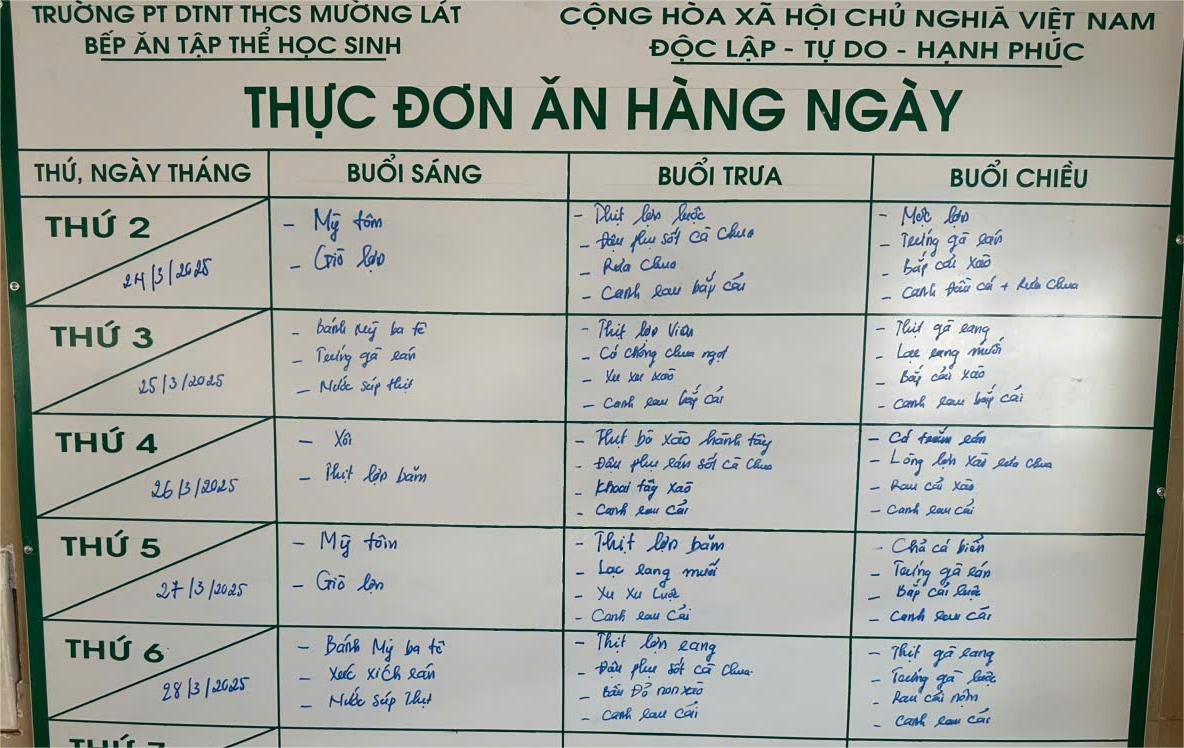 TRƯỜNG PT DTNT THCS MƯỜNG LÁT
BẾP ĂN TẬP THỂ HỌC SINH
CỘNG HÒA XÃ HỘI CHỦ NGHĨA VIỆT NAM
ĐỘC LẬP - TỰ DO - HẠNH PHÚC
THỰC ĐƠN ĂN HÀNG NGÀY
THỨ, NGÀY THÁNG
BUỔI SÁNG
BUỔI TRƯA
BUỔI CHIỀU
THỨ 2
24/3/2025
- Mỹ tôm
- Giò lợn
- Thịt lợn luộc
- Đậu phụ sốt cà chua
- Dưa chua
- Canh rau bắp cải
- Mọc lợn
- Trứng gà rán
- Bắp cải xào
- Canh đầu cá + dưa chua
THỨ 3
25/3/2025
- Bánh mỹ ba tê
- Trứng gà rán
- Nước súp thịt
- Thịt lợn viên
- Cá chống chua ngọt
- Xu xu xào
- Canh rau bắp cải
- Thịt gà rang
- Lạc rang muối
- Bắp cải xào
- Canh rau bắp cải
THỨ 4
26/3/2025
- Xôi
- Thịt lợn băm
- Thịt bò xào hành tây
- Đậu phụ rán sốt cà chua
- Khoai tây xào
- Canh rau cải
- Cá trắm rán
- Lòng lợn xào dưa chua
- Rau cải xào
- Canh rau cải
THỨ 5
27/3/2025
- Mỹ tôm
- Giò lợn
- Thịt lợn băm
- Lạc rang muối
- Xu xu luộc
- Canh rau cải
- Chả cá biển
- Trứng gà rán
- Bắp cải luộc
- Canh rau cải
THỨ 6
28/3/2025
- Bánh Mỹ ba tê
- Xúc xích rán
- Nước súp thịt
- Thịt lợn rang
- Đậu phụ sốt cà chua
- Bầu Đỏ non xào
- Canh rau cải
- Thịt gà rang
- Trứng gà luộc
- Rau cải nộm
- Canh rau cải
THỨ 7